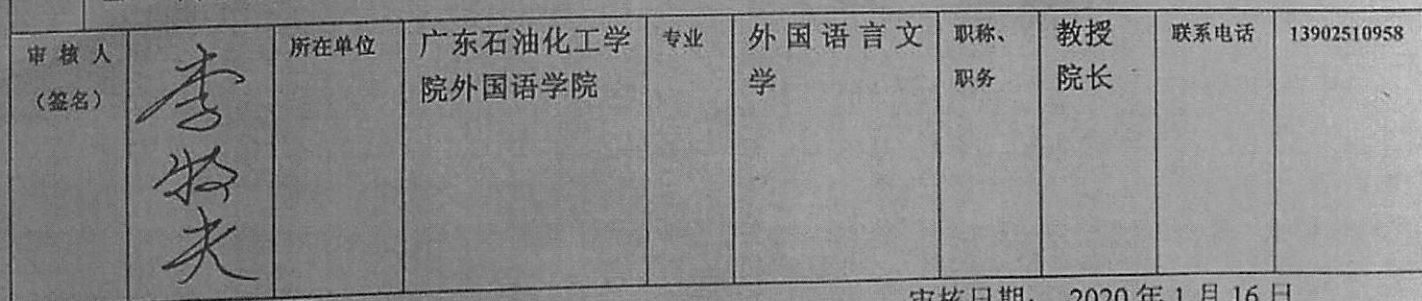 审核人
（签名）
李牧夫
所在单位
广东石油化工学
院外国语学院
专业
外国语言文
学
职称、
职务
教授
院长
联系电话
13902510958
审核日期： 2020年1月16日